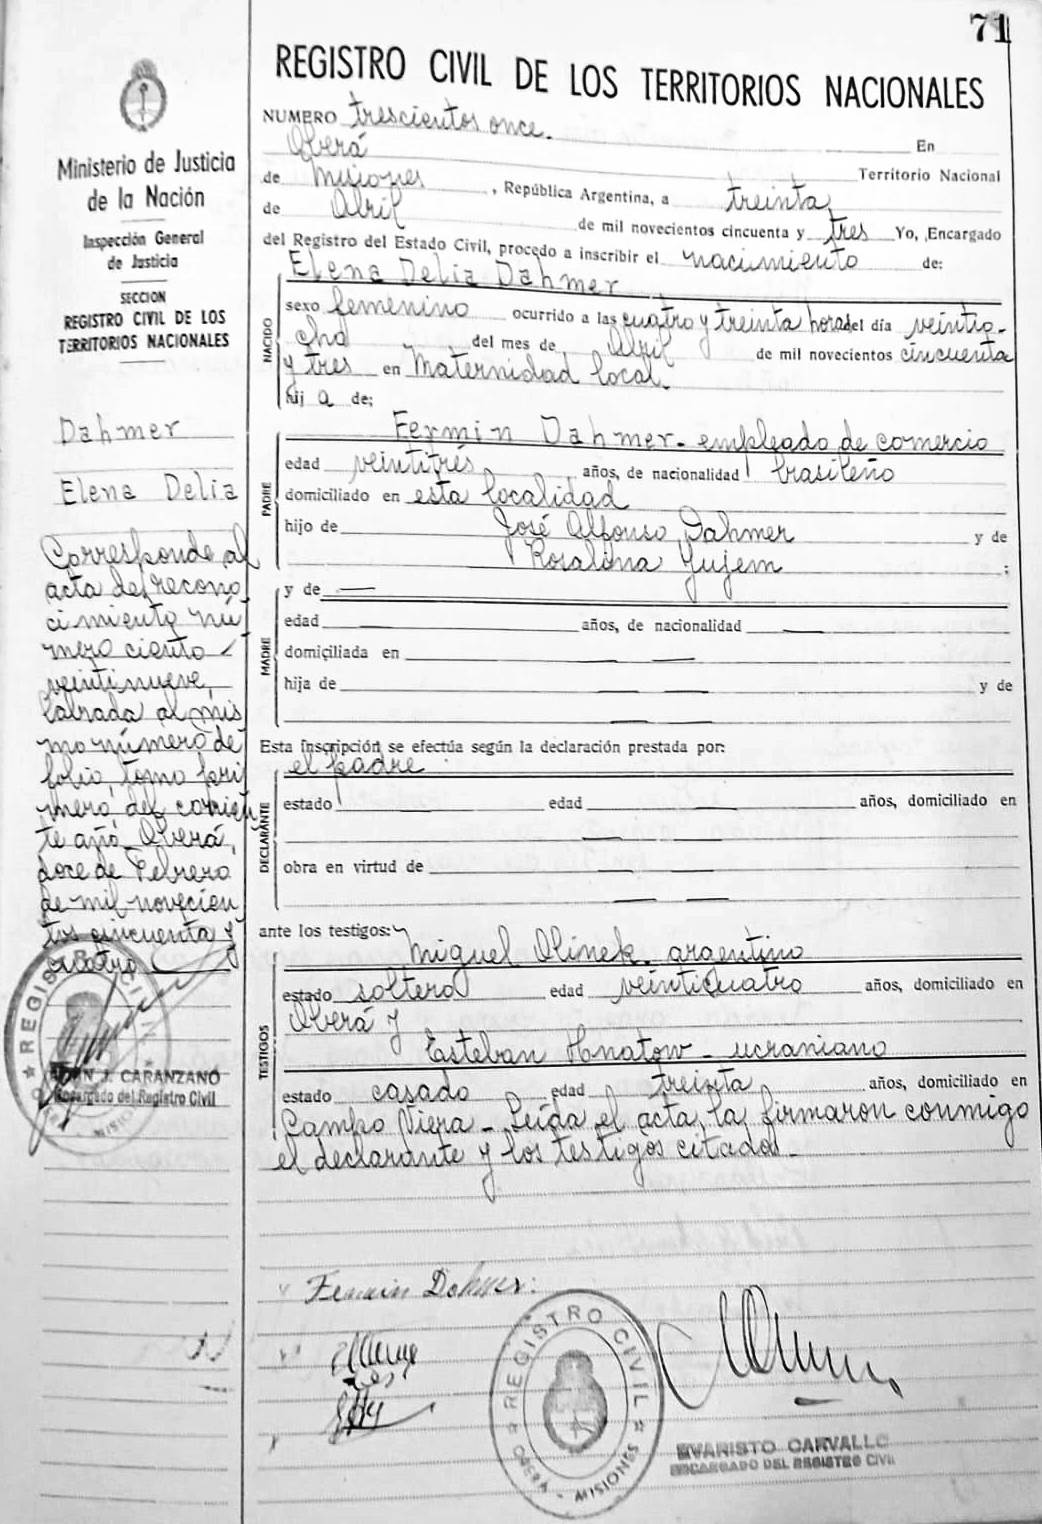 71
REGISTRO CIVIL DE LOS TERRITORIOS NACIONALES
NUMERO trescientos once. En
Oberá Territorio Nacional
de Misiones, República Argentina, a treinta
de Abril de mil novecientos cincuenta y tres Yo, Encargado
del Registro del Estado Civil, procedo a inscribir el nacimiento de:
Elena Delia Dahmer
NACIDO
sexo femenino ocurrido a las cuatro y treinta horas del día veintio-
cho del mes de Abril de mil novecientos cincuenta
y tres en Maternidad local.
hij a de;
PADRE
Fermin Dahmer - empleado de comercio
edad veintitrés años, de nacionalidad brasileño
domiciliado en esta localidad
hijo de José Alfonso Dahmer y de
Rosalina Jujem ;
MADRE
y de —
edad — años, de nacionalidad —
domiciliada en — —
hija de — — y de
— —
Esta inscripción se efectúa según la declaración prestada por:
el padre
DECLARANTE
estado — edad — años, domiciliado en
—
obra en virtud de — —
— —
ante los testigos:
TESTIGOS
Miguel Olinek - argentino
estado soltero edad veinticuatro años, domiciliado en
Oberá y
Esteban Hnatow - ucraniano
estado casado edad treinta años, domiciliado en
Campo Viera - Leída el acta, la firmaron conmigo
el declarante y los testigos citados.
Fermin Dahmer
REGISTRO CIVIL
OBERA - MISIONES
EVARISTO CARVALLO
ENCARGADO DEL REGISTRO CIVIL
Ministerio de Justicia
de la Nación
Inspección General
de Justicia
SECCION
REGISTRO CIVIL DE LOS
TERRITORIOS NACIONALES
Dahmer
Elena Delia
Corresponde al
acta de recono
cimiento nú
mero ciento
veintinueve,
labrada al mis
mo número de
folio, tomo pri
mero, del corrien
te año - Oberá,
doce de Febrero
de mil novecien
tos cincuenta y
cuatro
REGISTRO CIVIL
J. CARANZANO
Encargado del Registro Civil